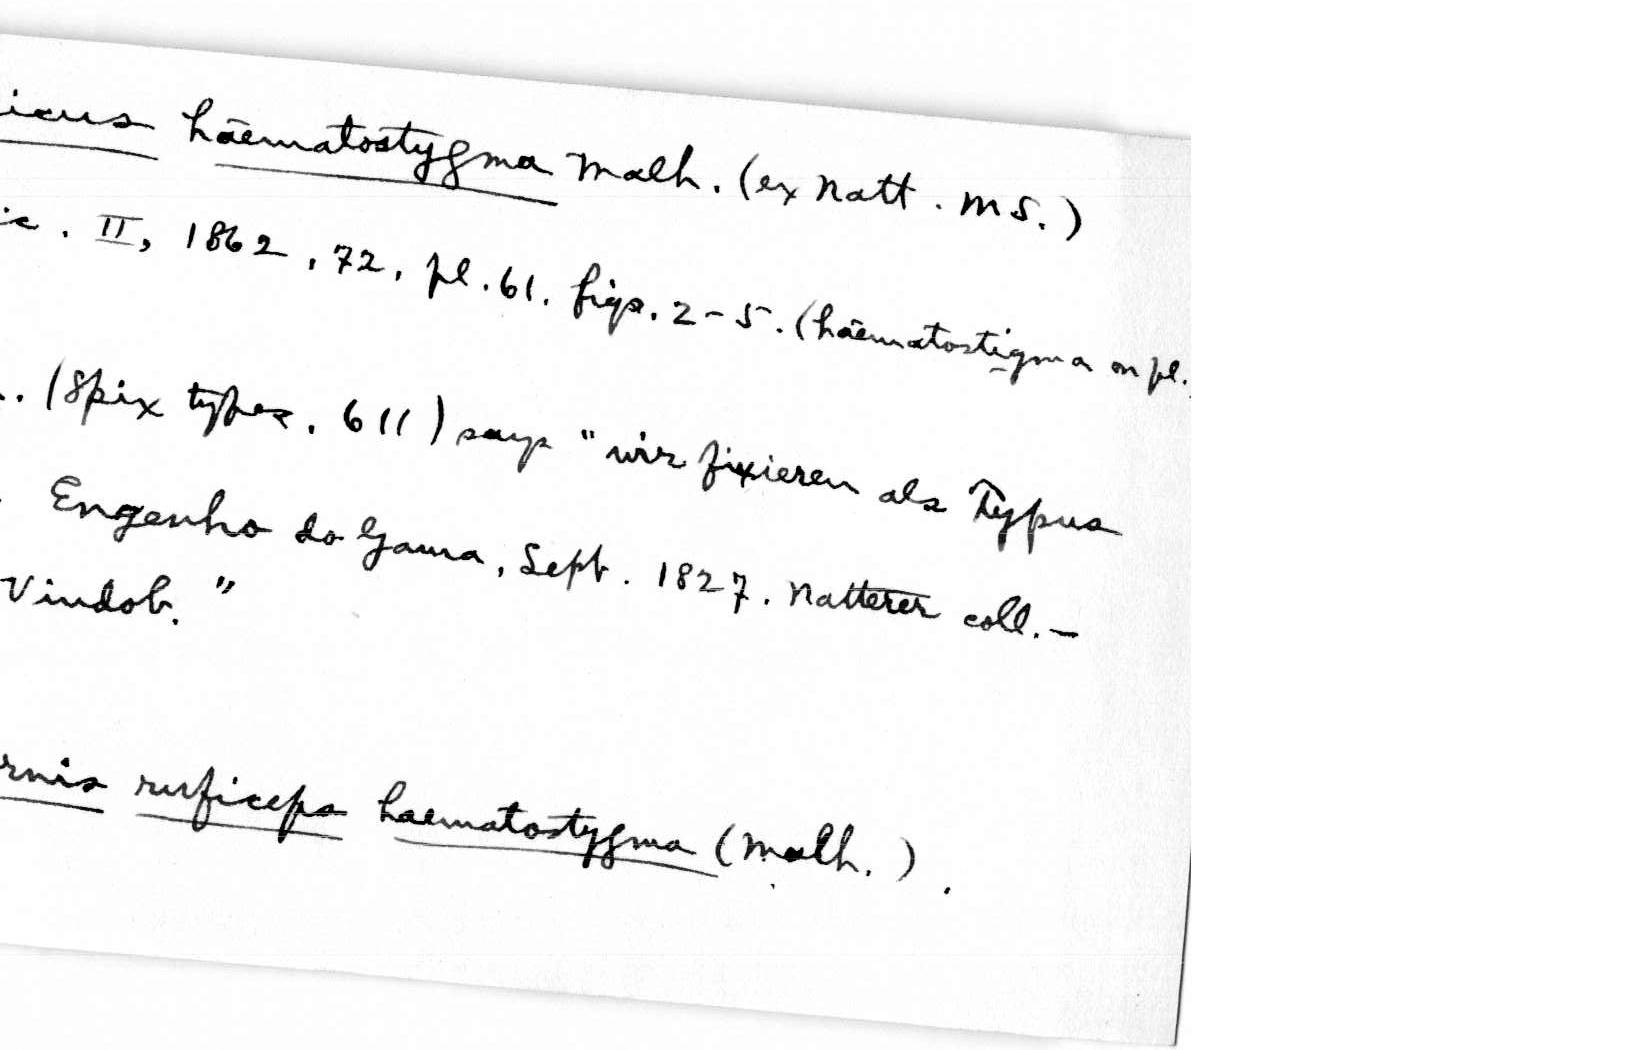 icus haematostygma Malh. (ex Natt. MS.)
ic. II, 1862, 72, pl. 61. figs. 2-5. (haematostigma on pl.
. (Spix types. 611) says "wir fixieren als Typus
Engenho do Gama, Sept. 1827. Natterer coll. –
Vindob."
rnis ruficeps haematostygma (Malh.).